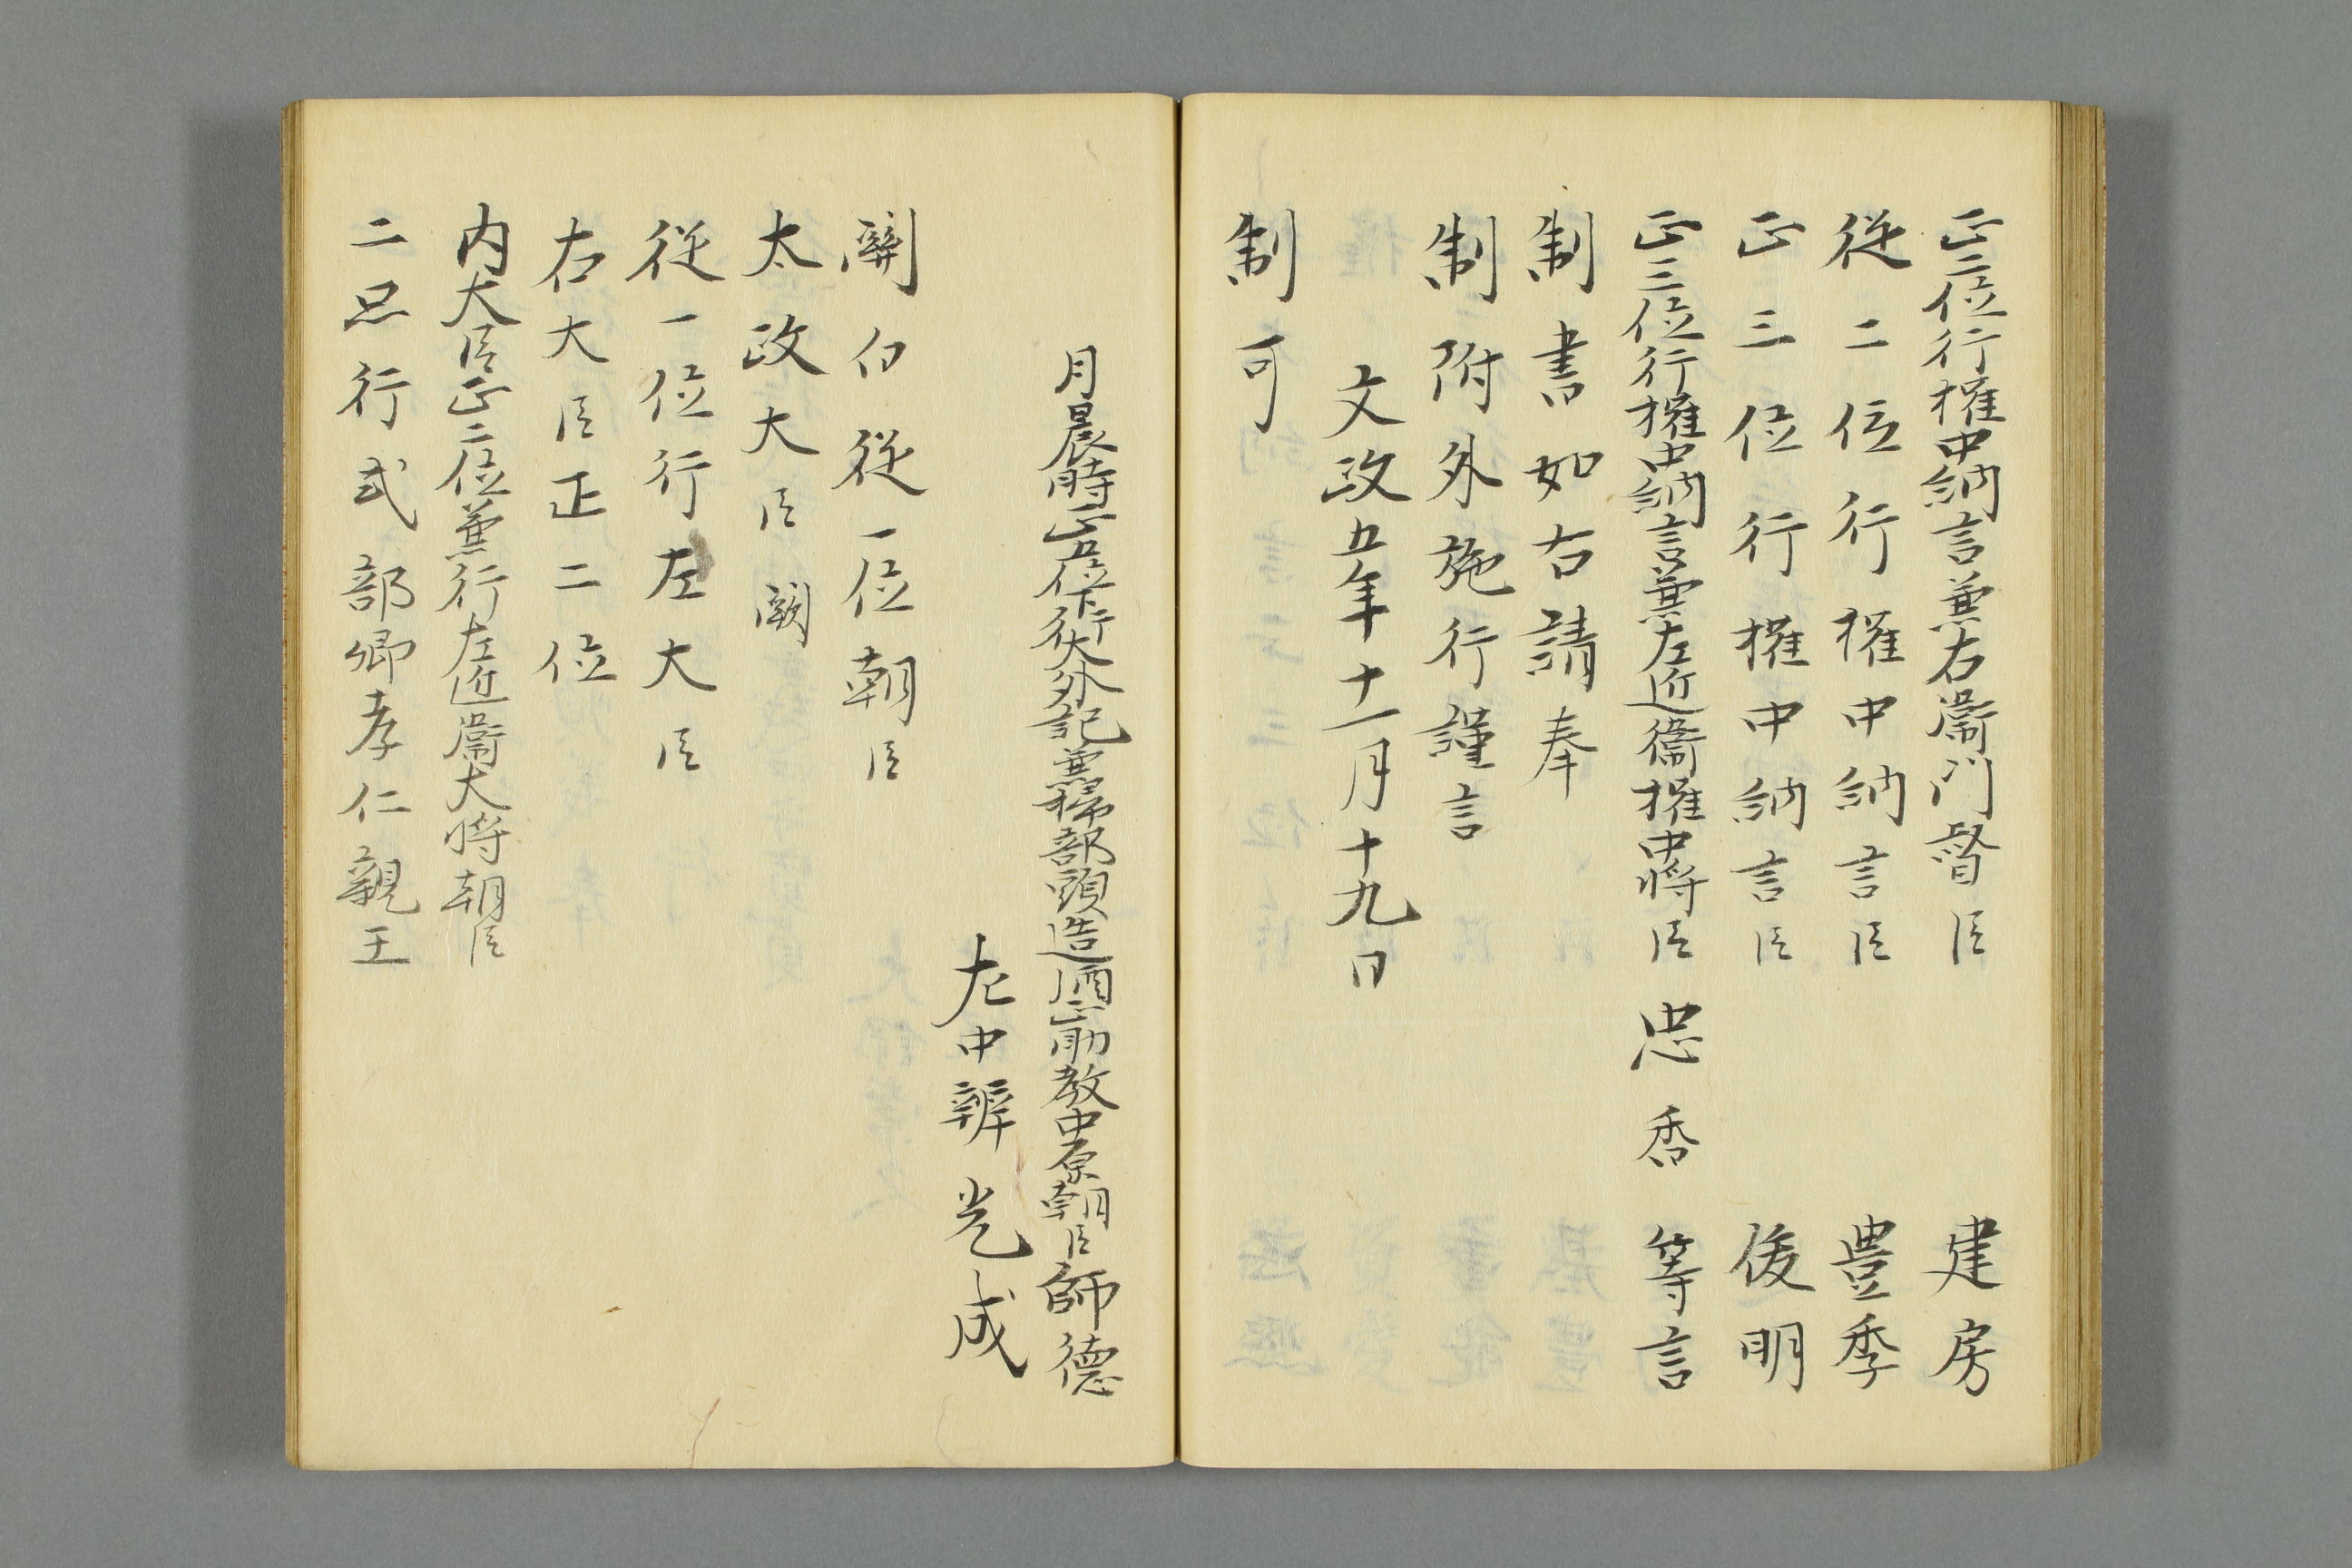 正二位行權中納言兼右衞門督臣 建房
從二位行權中納言臣 豊季
正三位行權中納言臣 俊明
正三位行權中納言兼左近衞權中將臣 忠香 等言
制書如右請奉
制附外施行謹言
文政五年十一月十九日
制可
月晨時正五位下行大外記兼掃部頭造酒正助教中原朝臣師德
左中辨光成
關白從一位朝臣
太政大臣闕
從一位行左大臣
右大臣正二位
内大臣正二位兼行左近衞大將朝臣
二品行式部卿孝仁親王